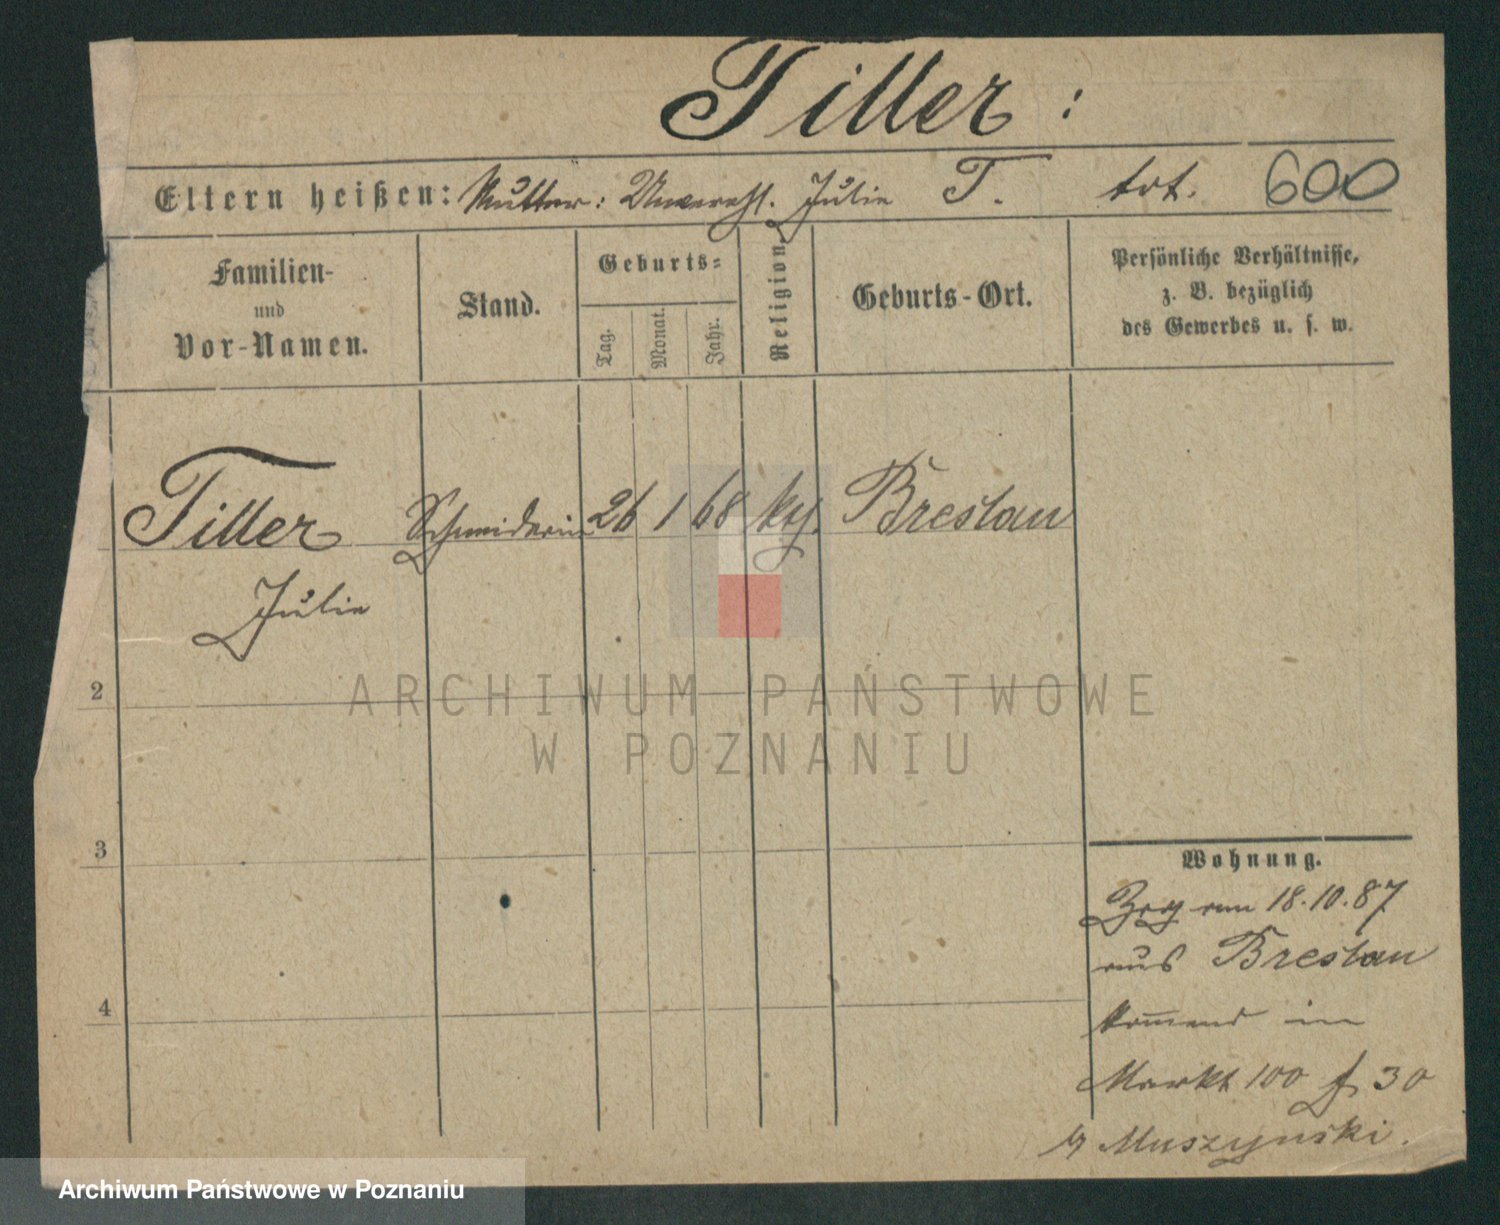 Tiller:
Eltern heißen: Mutter: Unvereh. Julie T. tot. 600
Familien-
und
Vor-Namen.
Stand.
Geburts-
Tag.
Monat.
Jahr.
Religion
Geburts-Ort.
Persönliche Verhältnisse,
z. B. bezüglich
des Gewerbes u. s. w.
Tiller Schneiderin 26 1 68 kth. Breslau
Julie
2
ARCHIWUM PAŃSTWOWE
W POZNANIU
3
Wohnung.
Zzg am 18.10.87
aus Breslau
kom̅end in
4
Markt 100 f 30
b/ Muszynski.
Archiwum Państwowe w Poznaniu